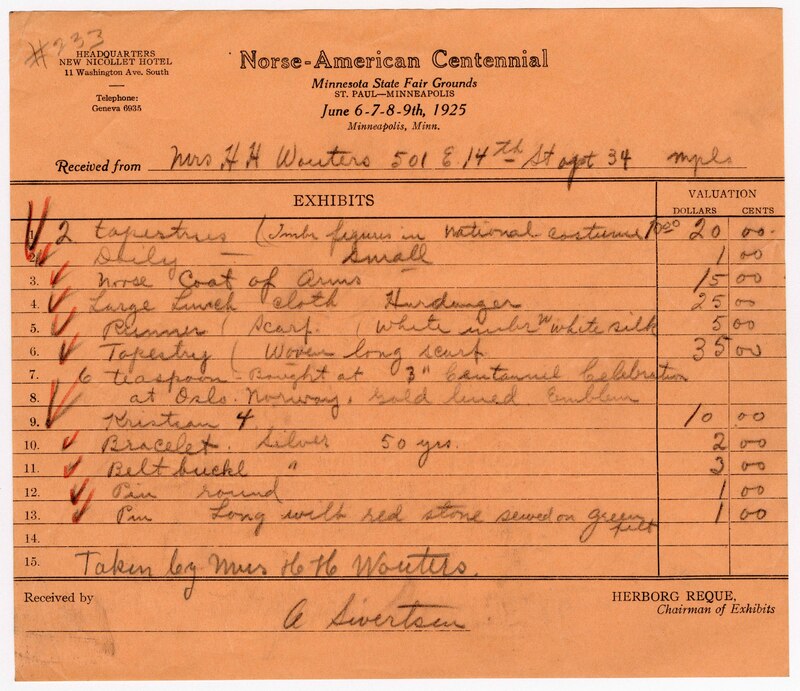 #233
HEADQUARTERS
NEW NICOLLET HOTEL
11 Washington Ave. South
Telephone:
Geneva 6935
Norse-American Centennial
Minnesota State Fair Grounds
ST. PAUL—MINNEAPOLIS
June 6-7-8-9th, 1925
Minneapolis, Minn.
Received from Mrs H H Wouters 501 E 14th St apt 34 mpls
EXHIBITS
VALUATION
DOLLARS CENTS
1. 2 tapestries (Imbr figures in National costume 10 00 20 00
2. Doily — Small 1 00
3. Norse Coat of Arms — 15 00
4. Large Lunch cloth Hardanger 25 00
5. Runner ( Scarf. ( White imbr in white silk 5 00
6. Tapestry ( Woven long scarf 35 00
7. 6 teaspoon - Bought at 3" Centannel Celebration
8. at Oslo. Norway, gold lined Emblem
9. Kristian 4. 10 00
10. Bracelet. Silver 50 yrs. 2 00
11. Belt buckl " 3 00
12. Pin round 1 00
13. Pin Long with red stone sewed on green felt 1 00
14.
15. Taken by Mrs H H Wouters.
Received by A Sivertsen
HERBORG REQUE,
Chairman of Exhibits